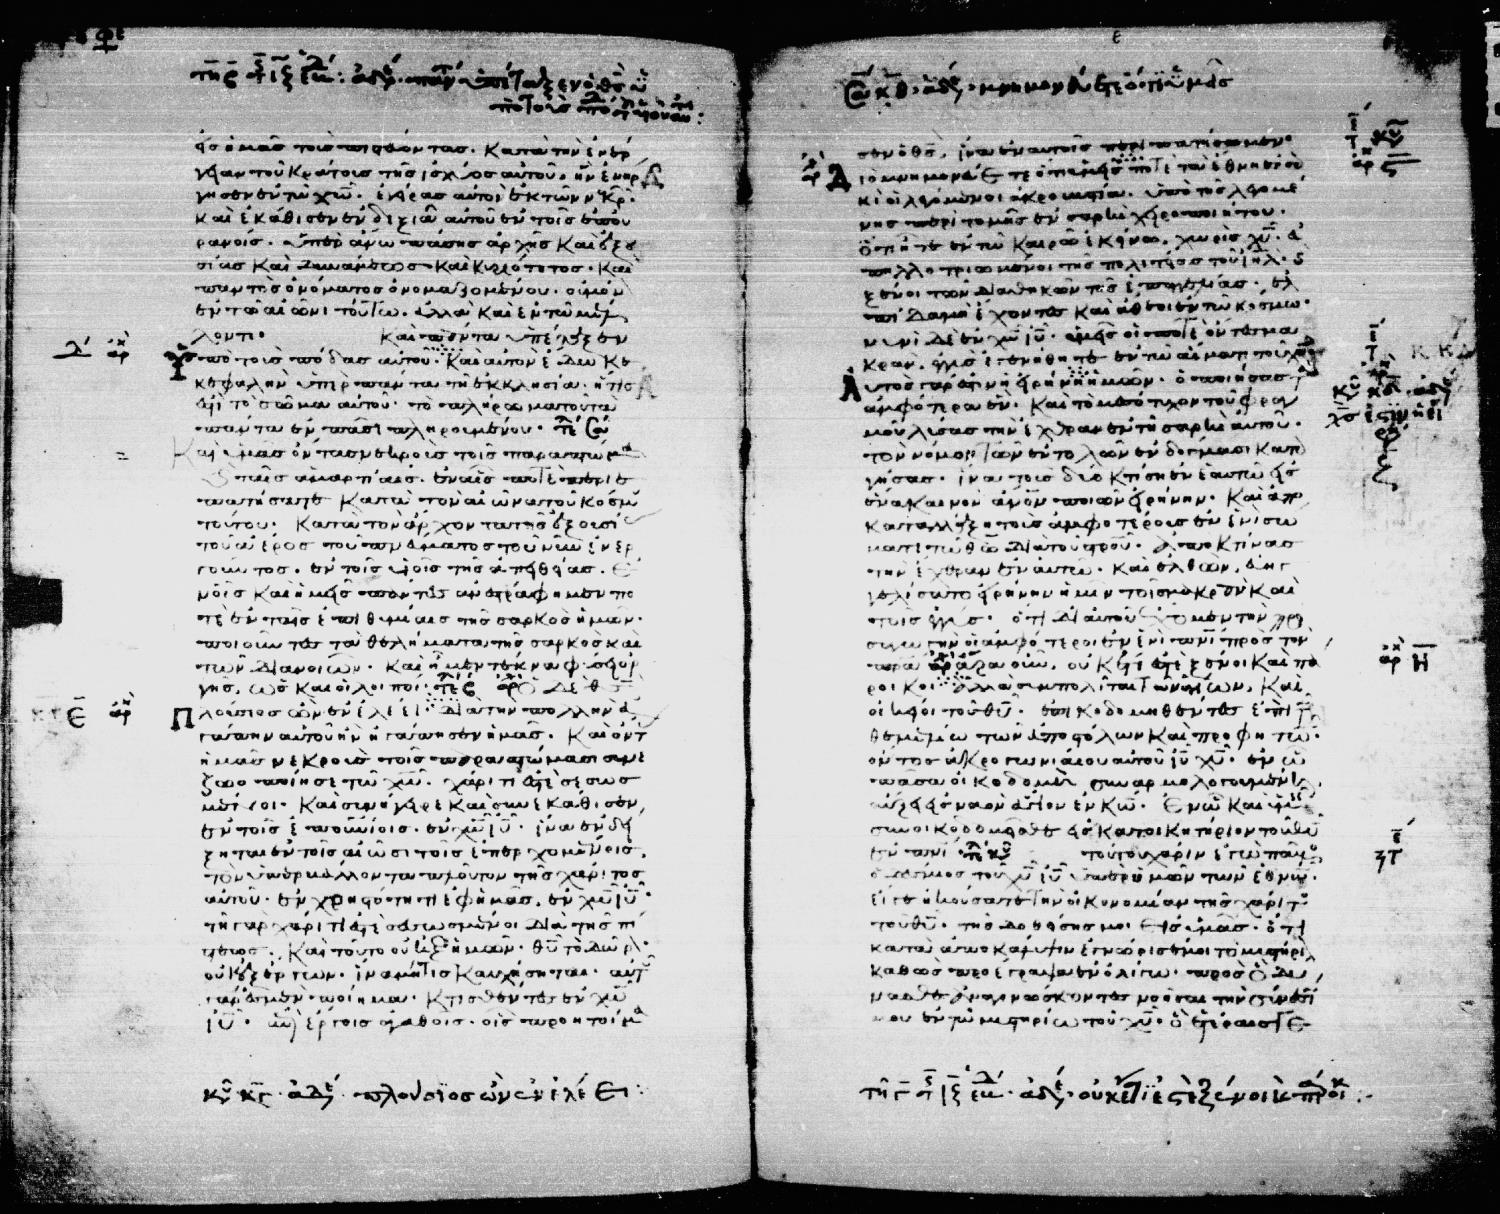 εἰς ἡμᾶς τοὺς πιστεύοντας. Κατὰ τὴν ἐνέρ
γειαν τοῦ κράτους τῆς ἰσχύος αὐτοῦ. ἣν ἐνήρ
γησεν ἐν τῷ χω. ἐγείρας αὐτὸν ἐκ τῶν νεκρ
καὶ ἐκάθισεν ἐν δεξιᾷ αὐτοῦ ἐν τοῖς ἐπου
ρανίοις. ὑπὲρ ἄνω πάσης ἀρχῆς καὶ ἐξου
σίας καὶ δυνάμεως καὶ κυριότητος. καὶ
παντὸς ὀνόματος ὀνομαζομένου. οὐ μόν
ἐν τῷ αἰῶνι τούτω. ἀλλὰ καὶ ἐν τῶ μέλ
λοντι. Καὶ πάντα ὑπέταξεν
ὑπὸ τοὺς πόδας αὐτοῦ. Καὶ αὐτὸν ἔδωκε
κεφαλὴν ὑπὲρ πάντα τῇ ἐκκλησίᾳ. ἥτις
ἐστὶ τὸ σῶμα αὐτοῦ. τὸ πλήρωμα τοῦ τὰ
πάντα ἐν πᾶσι πληρουμένου.
Καὶ ὑμᾶς ὄντας νεκροὺς τοῖς παραπτώμα
ταῖς ἁμαρτίαις. ἐν αἷς ποτὲ περιε
πατήσατε κατὰ τὸν αἰῶνα τοῦ κόσμου
τούτου. Κατὰ τὸν ἄρχοντα τῆς ἐξουσί
τοῦ ἀέρος τοῦ πνεύματος τοῦ νῦν ἐνερ
γοῦντος. ἐν τοῖς υἱοῖς τῆς ἀπειθείας. Ἐν
οἷς καὶ ἡμεῖς πάντες ἀνεστράφημεν πο
τὲ ἐν ταῖς ἐπιθυμίαις τῆς σαρκὸς ἡμῶν.
ποιοῦντες τὰ θελήματα τῆς σαρκὸς καὶ
τῶν διανοιῶν. Καὶ ἦμεν τέκνα φύσει ὀρ
γῆς, ὡς καὶ οἱ λοιποί. Ὁ δὲ θς
Πλούσιος ὢν ἐν ἐλέει. διὰ τὴν πολλὴν ἀ
γάπην αὐτοῦ ἣν ἠγάπησεν ἡμᾶς. Καὶ ὄντ
ἡμᾶς νεκροὺς τοῖς παραπτώμασι συνε
ζωοποίησε τῶ χω. χάριτί ἐστε σεσωσ
μένοι. Καὶ συνήγειρε καὶ συνεκάθισεν,
ἐν τοῖς ἐπουνίοις. ἐν χω ιυ. ἵνα ἐνδεί
ξηται ἐν τοῖς αἰῶσι τοῖς ἐπερχομένοις.
τὸν ὑπερβάλλοντα πλοῦτον τῆς χάριτος
αὐτοῦ. ἐν χρηστότητι ἐφ ἡμᾶς. ἐν χω ιυ.
τῇ γὰρ χάριτί ἐστε σεσωσμένοι διὰ τῆς πί
στεως. Καὶ τοῦτο οὐκ ἐξ ἡμῶν. θυ τὸ δῶρ
οὐκ ἐξ ἔργων. ἵνα μή τις καυχήσηται. αὐτ
γάρ ἐσμεν ποίημα. Κτισθέντες ἐν χω
ιυ. ἐπὶ ἔργοις ἀγαθοῖς. οἷς προητοίμα
κυ κγ. ἀδε. πλούσιος ὢν ἐν ἐλέει:
κθ. ἀδε. μνημονεύετε ὅτι ὑμεῖς
σεν ὁ θς, ἵνα ἐν αὐτοῖς περιπατήσωμεν
Διὸ μνημονεύετε ὅτι ὑμεῖς ποτὲ τὰ ἔθνη ἐν σα
κὶ οἱ λεγόμενοι ἀκροβυστία. ὑπὸ τῆς λεγομέ
νης περιτομῆς ἐν σαρκὶ χειροποιήτου.
ὅτι ἦτε ἐν τῶ καιρῶ ἐκείνω, χωρὶς χυ. ἀ
πηλλοτριωμένοι τῆς πολιτείας τοῦ ιηλ.
ξένοι τῶν διαθηκῶν τῆς ἐπαγγελίας. ἐλ
πίδα μὴ ἔχοντες καὶ ἄθεοι ἐν τῶ κόσμω.
νυνὶ δὲ ἐν χω ιυ. ὑμεῖς οἱ ποτὲ ὄντες μα
κρὰν, ἐγγὺς ἐγενήθητε ἐν τῶ αἵματι τοῦ χυ
Αὐτὸς γάρ ἐστιν ἡ εἰρήνη ἡμῶν. ὁ ποιήσας τ
ἀμφότερα ἕν. Καὶ τὸ μεσότοιχον τοῦ φραγ
μοῦ λύσας τὴν ἔχθραν ἐν τῇ σαρκὶ αὐτοῦ.
τὸν νόμον τῶν ἐντολῶν ἐν δόγμασι καταρ
γήσας. ἵνα τοὺς δύο κτίσῃ ἐν ἑαυτῶ εἰς
ἕνα καινὸν ἄνον ποιῶν εἰρήνην. Καὶ ἀπο
καταλλάξῃ τοὺς ἀμφοτέρους ἐν ἑνὶ σώ
ματι τῶ θω διὰ τοῦ σταυροῦ. ἀποκτείνας
τὴν ἔχθραν ἐν αὐτῶ. Καὶ ἐλθὼν, εὐηγ
γελίσατο εἰρήνην ἡμῖν τοῖς μακρὰν καὶ
τοῖς ἐγγύς. ὅτι δι αὐτοῦ ἔχομεν τὴν προ
σαγωγὴν οἱ ἀμφότεροι ἐν ἑνὶ πνι πρὸς τὸν
πατέρα. ἄρα οὖν, οὐκέτι ἐστὲ ξένοι καὶ πά
ροικοι. ἀλλὰ συμπολῖται τῶν ἁγίων, Καὶ
οἰκεῖοι τοῦ θυ. ἐποικοδομηθέντες ἐπὶ τ
θεμελίω τῶν ἀποστόλων καὶ προφητῶν.
ὄντος ἀκρογωνιαίου αὐτοῦ ιυ χυ. ἐν ὧ
πᾶσα οἰκοδομὴ συναρμολογουμένη,
αὔξει εἰς ναὸν ἅγιον ἐν κω. Ἐν ὧ καὶ ὑμεῖς
συνοικοδομεῖσθε εἰς κατοικητήριον τοῦ θυ
ἐν πνι τούτου χάριν ἐγὼ παῦλος
ὁ δέσμιος τοῦ χυ ιυ ὑπὲρ ὑμῶν τῶν ἐθνῶν.
εἴγε ἠκούσατε τὴν οἰκονομίαν τῆς χάριτος
τοῦ θυ. τῆς δοθείσης μοι εἰς ὑμᾶς. ὅτι
κατὰ ἀποκάλυψιν ἐγνώρισέν μοι τὸ μυστήρι
καθὼς προέγραψα ἐν ὀλίγω. πρὸς ὃ δύ
νασθε ἀναγινώσκοντες νοῆσαι τὴν σύνεσί
μου ἐν τῶ μυστηρίω τοῦ χυ. ὃ ἑτέραις γε
ἀδε. οὐκέτι ἐστὲ ξένοι καὶ πάροι